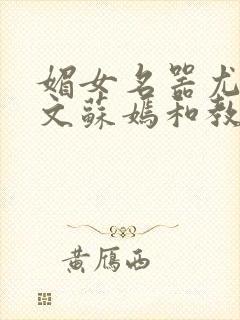 媚女名器尤
文蘇媽和教
黃鴈西